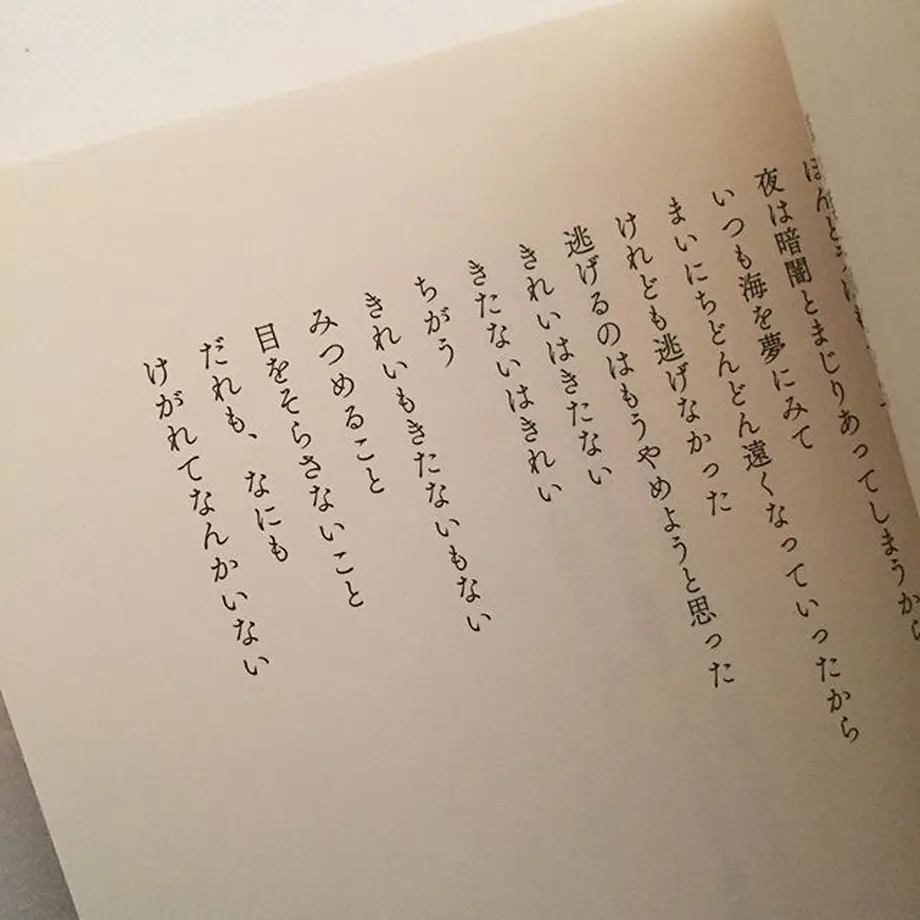 ほんと
夜は暗闇とまじりあってしまうから
いつも海を夢にみて
まいにちどんどん遠くなっていったから
けれども逃げなかった
逃げるのはもうやめようと思った
きれいはきたない
きたないはきれい
ちがう
きれいもきたないもない
みつめること
目をそらさないこと
だれも、なにも
けがれてなんかいない